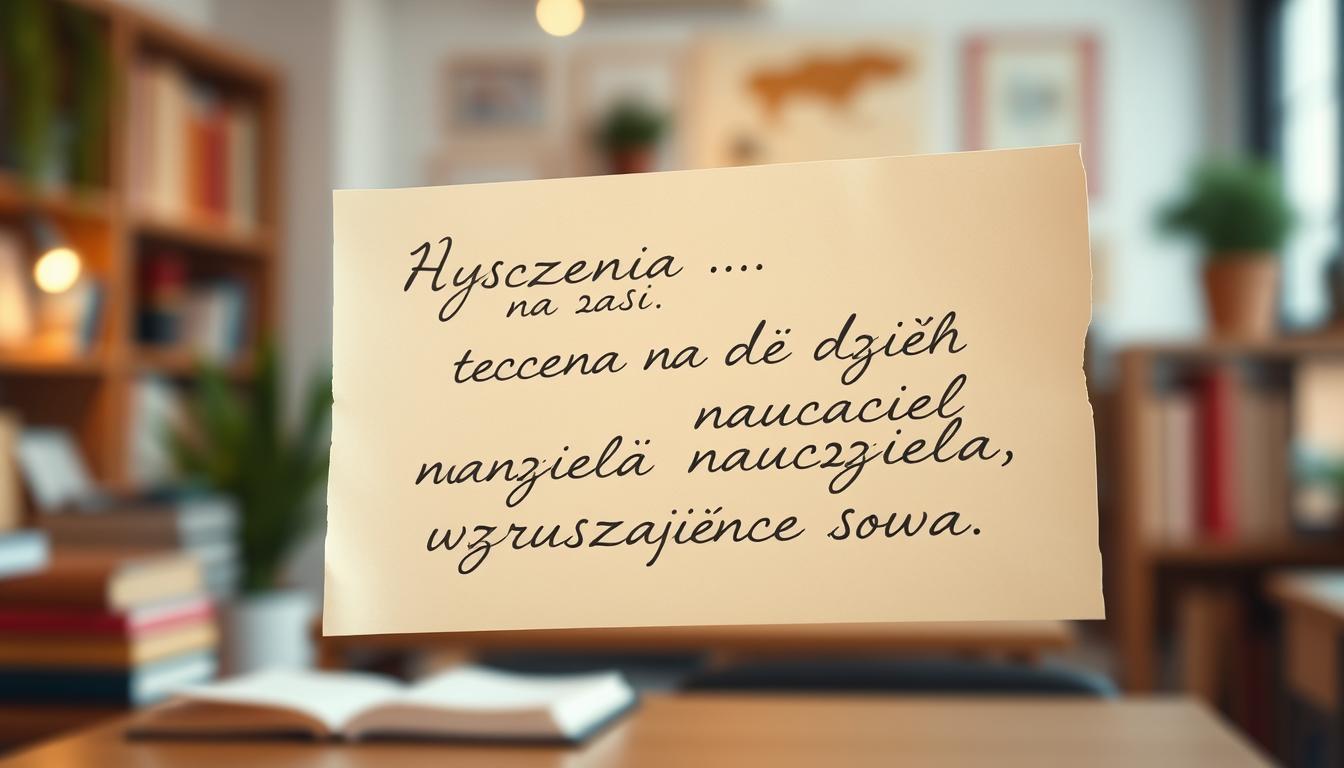 Hysczenia ....
na zasi.
teccena na dë dziěh
naucaciel
manzielä nauczziela,
wzruszajiěnce sowa.